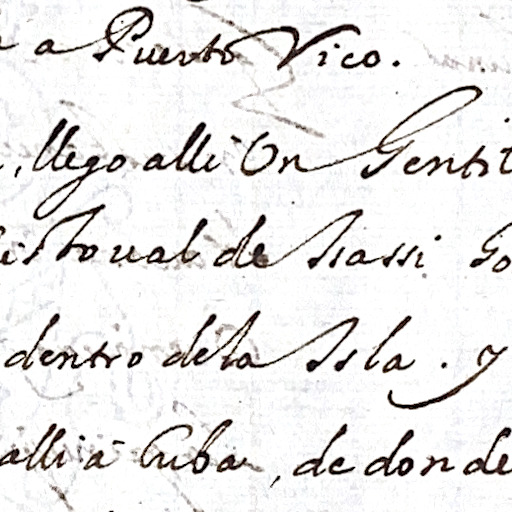 a Puerto Rico.
, llego alli Un Gentil
istoual de Issassi Go
dentro de la Isla. y
alli â Cuba, de donde